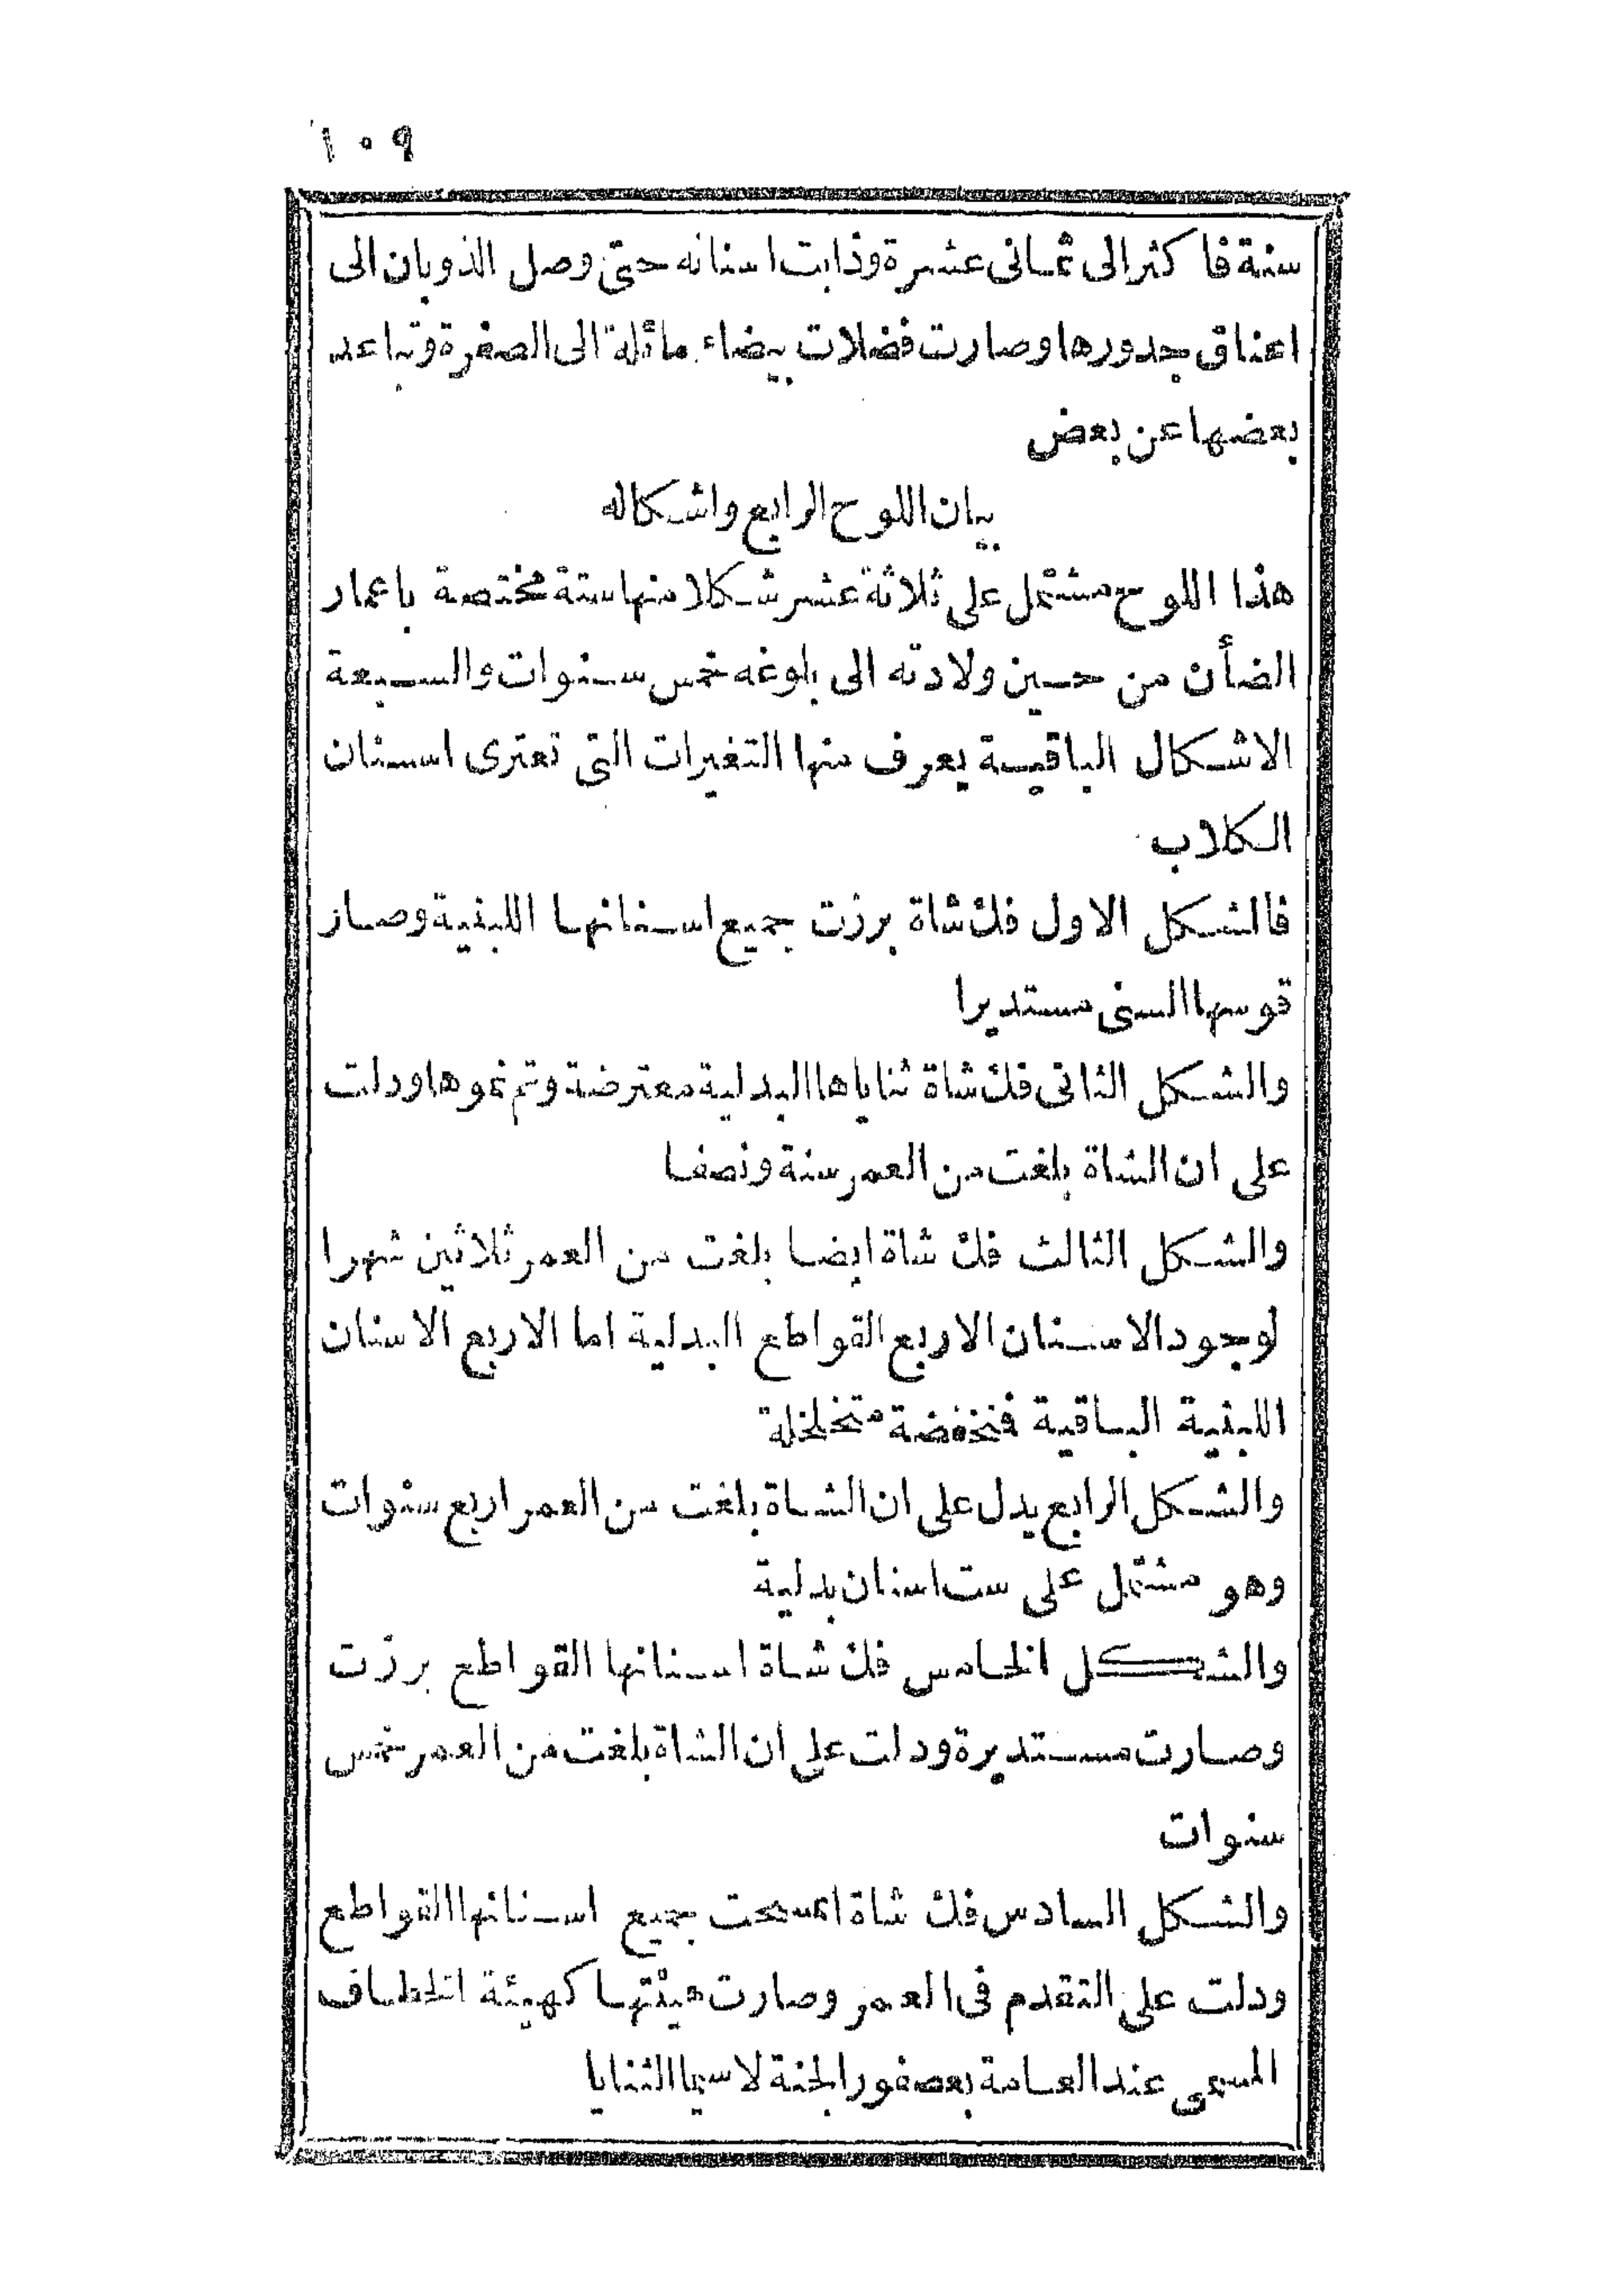 ١٠٩
سنة فاكثر الى ثمانى عشرة وذابت اسنانه حتى وصل الذوبان الى
اعناق جدورها وصارت فضلات بيضاء مائلة الى الصفرة وتباعد
بعضها عن بعض
بيان اللوح الرابع واشكاله
هذا اللوح مشتمل على ثلاثة عشر شكلا منها ستة مختصة باعمار
الضأن من حين ولادته الى بلوغه خمس سنوات والسبعة
الاشكال الباقية يعرف منها التغيرات التى تعترى اسنان
الكلاب
فالشكل الاول فك شاة برزت جميع اسنانها اللبنية وصار
قوسها السنى مستديرا
والشكل الثانى فك شاة ثناياها البدلية معترضة وتم نموها ودلت
على ان الشاة بلغت من العمر سنة ونصفا
والشكل الثالث فك شاة ايضا بلغت من العمر ثلاثين شهرا
لوجود الاسنان الاربع القواطع البدلية اما الاربع الاسنان
اللبنية الباقية فمنخفضة متخلخلة
والشكل الرابع يدل على ان الشاة بلغت من العمر اربع سنوات
وهو مشتمل على ست اسنان بدلية
والشكل الخامس فك شاة اسنانها القواطع برزت
وصارت مستديرة ودلت على ان الشاة بلغت من العمر خمس
سنوات
والشكل السادس فك شاة امسحت جميع اسنانها القواطع
ودلت على التقدم فى العمر وصارت هيئتها كهيئة الخطاف
المسمى عند العامة بعصفور الجنة لاسيما الثنايا